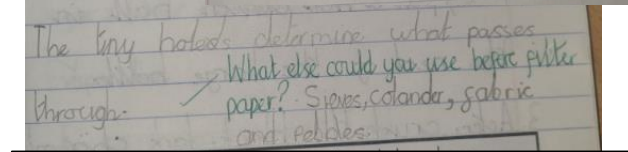 The tiny holes determine what passes
through.
What else could you use before filter
paper? Sieves, colander, fabric
and pebbles.